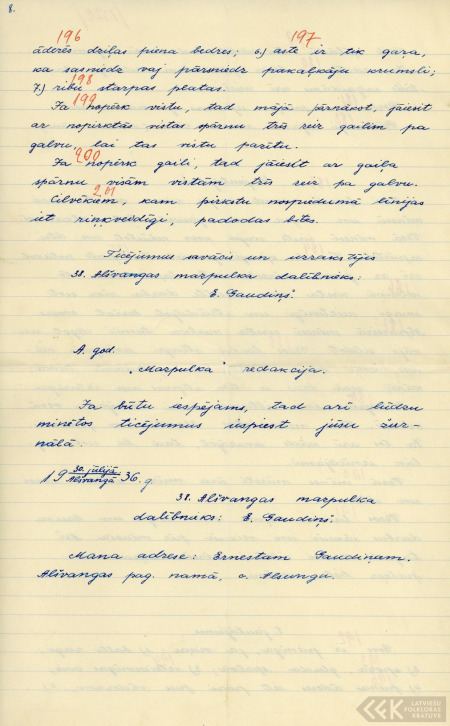 8.
196 197
āderēs dziļas piena bedres; 6) aste ir tik gaŗa,
ka sasniedz vaj pārsniedz pakaļkāju krumsli;
198
7) ribu starpas platas.
199
Ja nopērk vistu, tad mājā pārnākot, jāiesit
ar nopirktās vistas spārnu trīs reiz gailim pa
galvu, lai tas vistu pazītu.
200
Ja nopērk gaili, tad jāiesit ar gaiļa
spārnu visām vistām trīs reiz pa galvu.
201
Cilvēkiem, kam pirkstu nospiedumā līnijas
iet riņķveidīgi, padodas bites.
Ticējumus savācis un uzrakstījis
38. Alšvangas mazpulka dalībnieks:
E. Gaudiņš.
A. god.
"Mazpulka" redakcija.
Ja būtu iespējams, tad arī lūdzu
minētos ticējumus iespiest jūsu žur-
nālā.
30. jūlijā
19 Alšvangā 36. g.
38. Alšvangas mazpulka
dalībnieks: E. Gaudiņš.
Mana adrese: Ernestam Gaudiņam.
Alšvangas pag. namā, c. Alsungu.
LATVIEŠU
FOLKLORAS
KRĀTUVE